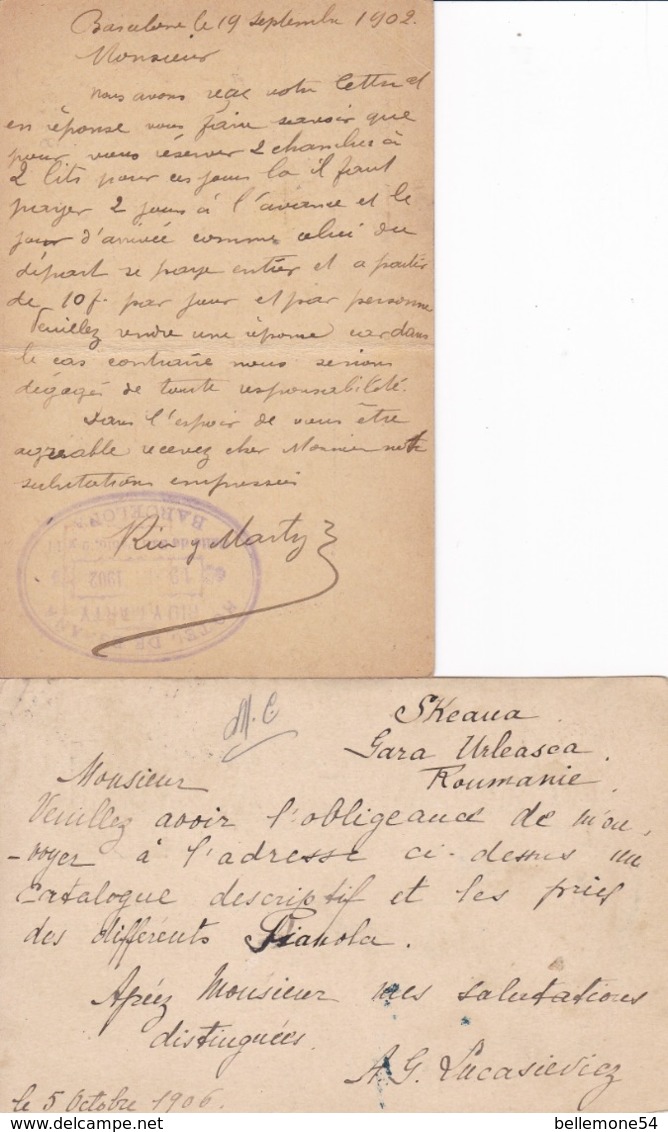 Barcelone le 19 Septembre 1902.
Monsieur
Nous avons reçu votre lettre et
en réponse vous faire savoir que
pour vous réserver 2 chambres à
2 lits pour ces jours la il faut
payer 2 jours à l'avance et le
jour d'arrivée comme celui du
départ se paye entier et a partir
de 10 f. par jour et par personne
Veuillez rendre une réponse car dans
le cas contraire nous serions
dégagés de toute responsabilité.
Dans l'espoir de vous être
agréable recevez cher Monsieur nos
salutations empressées
Riu y Marty
BARCELONA
1902
M. C
Skeaua
Gara Urleasca.
Roumanie.
Monsieur
Veuillez avoir l'obligeance de m'en-
-voyer à l'adresse ci-dessus un
catalogue descriptif et les prix
des différents Pianola.
Agréez Monsieur mes salutations
distinguées.
A. G. Lucasievicz
le 5 Octobre 1906.
bellemone54